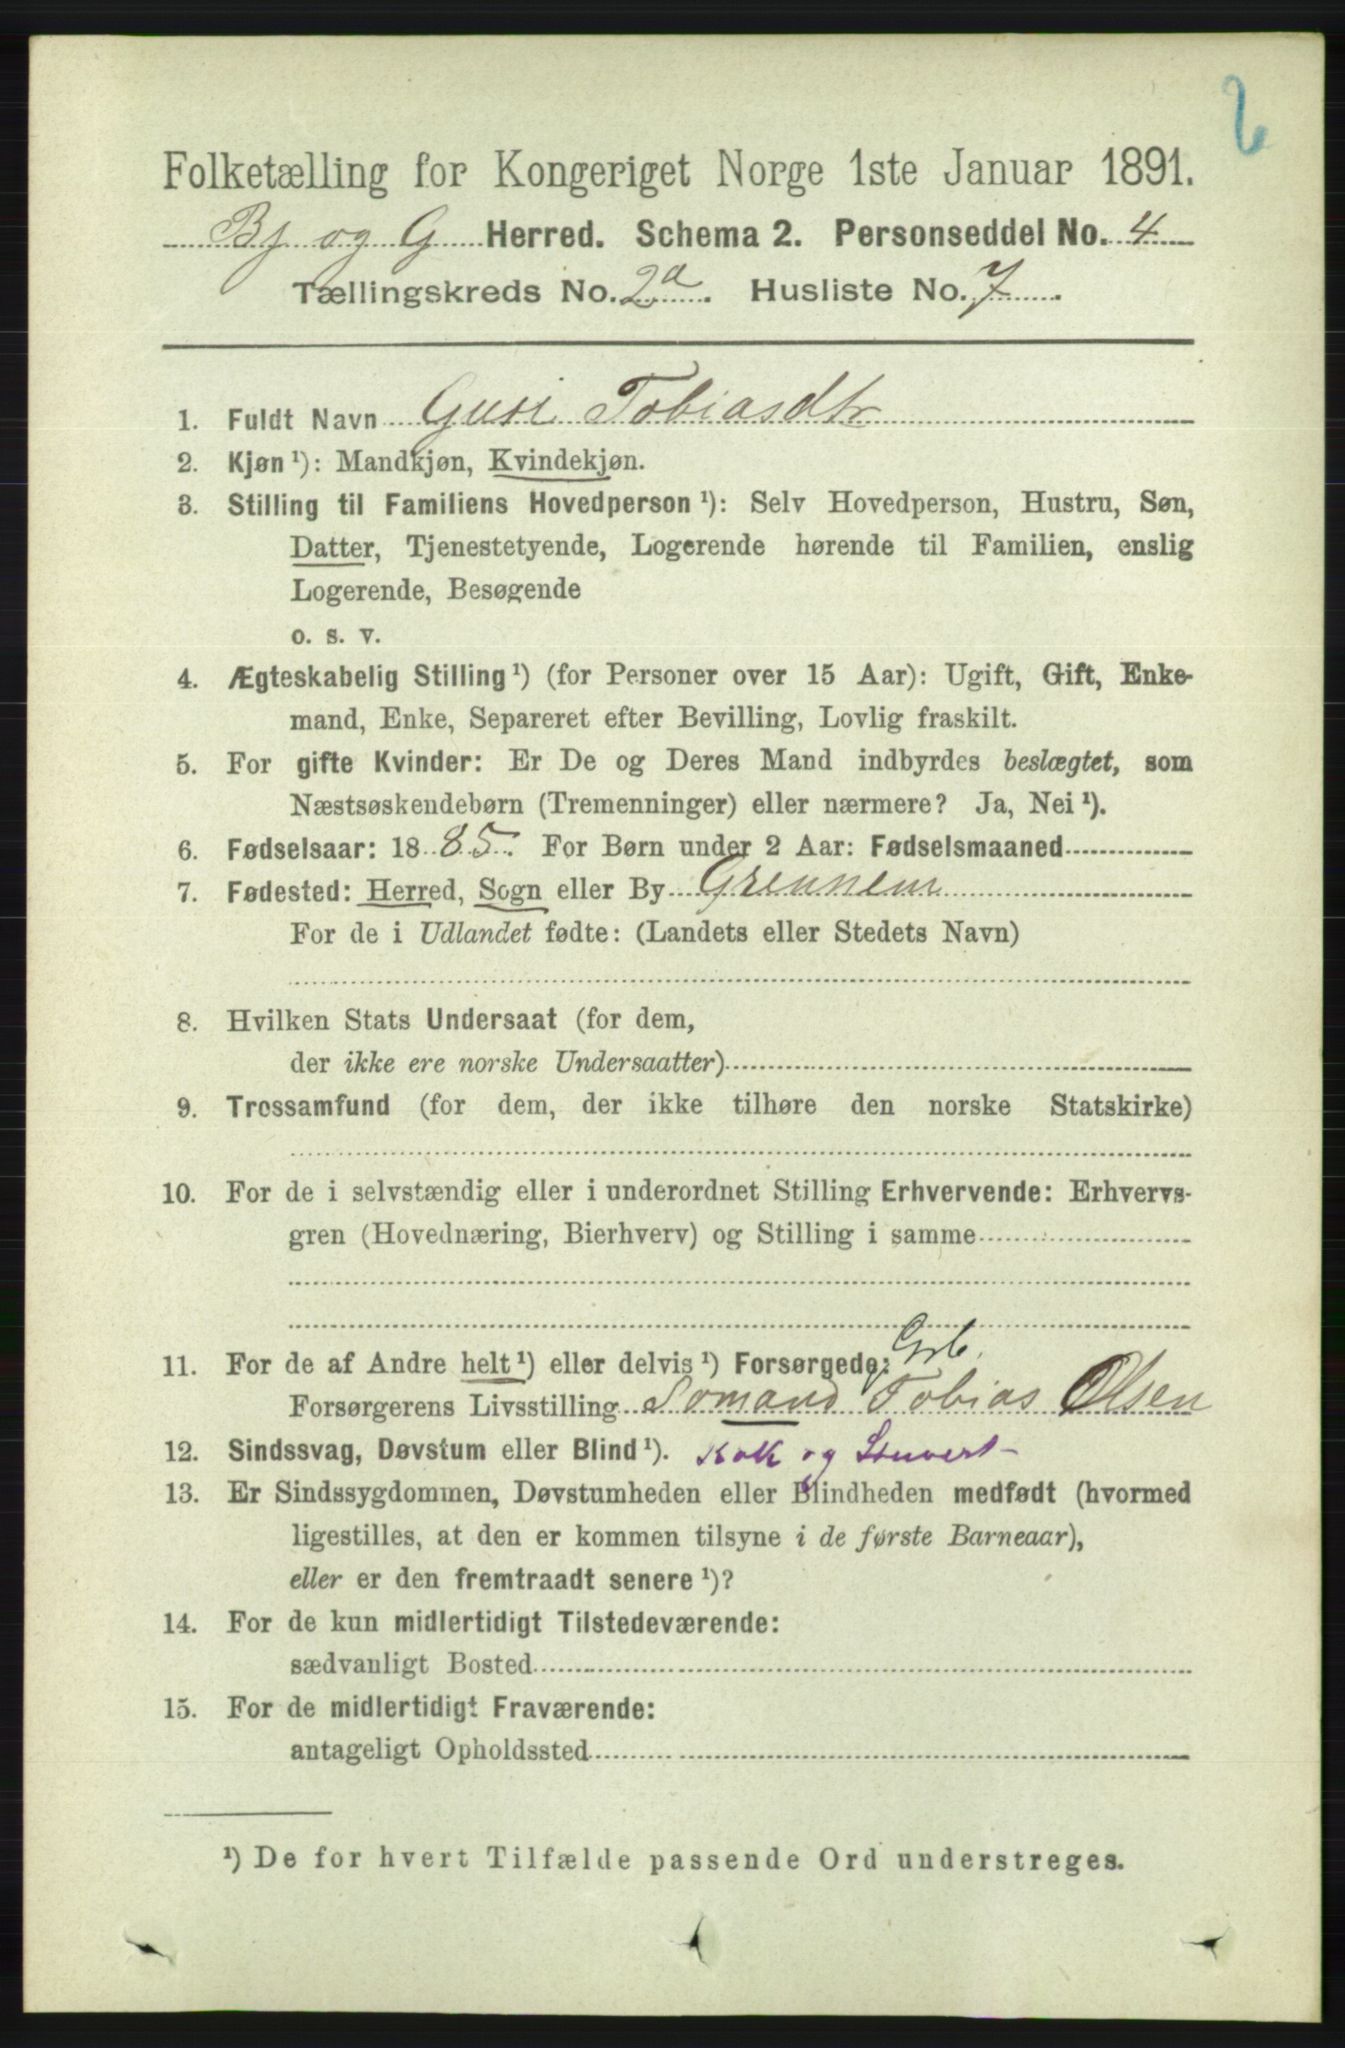 6
Folketælling for Kongeriget Norge 1ste Januar 1891.
Bj og G Herred. Schema 2. Personseddel No. 4
Tællingskreds No. 2a. Husliste No. 7.
1. Fuldt Navn Gusi Tobiasdtr
2. Kjøn¹): Mandkjøn, Kvindekjøn.
3. Stilling til Familiens Hovedperson¹): Selv Hovedperson, Hustru, Søn,
Datter, Tjenestetyende, Logerende hørende til Familien, enslig
Logerende, Besøgende
o. s. v.
4. Ægteskabelig Stilling¹) (for Personer over 15 Aar): Ugift, Gift, Enke-
mand, Enke, Separeret efter Bevilling, Lovlig fraskilt.
5. For gifte Kvinder: Er De og Deres Mand indbyrdes beslægtet, som
Næstsøskendebørn (Tremenninger) eller nærmere? Ja, Nei¹).
6. Fødselsaar: 1885. For Børn under 2 Aar: Fødselsmaaned
7. Fødested: Herred, Sogn eller By
For de i Udlandet fødte: (Landets eller Stedets Navn)
8. Hvilken Stats Undersaat (for dem,
der ikke ere norske Undersaatter)
9. Trossamfund (for dem, der ikke tilhøre den norske Statskirke)
10. For de i selvstændig eller i underordnet Stilling Erhvervende: Erhvervs-
gren (Hovednæring, Bierhverv) og Stilling i samme
11. For de af Andre helt¹) eller delvis¹) Forsørgede:
Forsørgerens Livsstilling Sømand Tobias Olsen
12. Sindssvag, Døvstum eller Blind¹). Kok og Stuvert
13. Er Sindssygdommen, Døvstumheden eller Blindheden medfødt (hvormed
ligestilles, at den er kommen tilsyne i de første Barneaar),
eller er den fremtraadt senere¹)?
14. For de kun midlertidigt Tilstedeværende:
sædvanligt Bosted
15. For de midlertidigt Fraværende:
antageligt Opholdssted
¹) De for hvert Tilfælde passende Ord understreges.